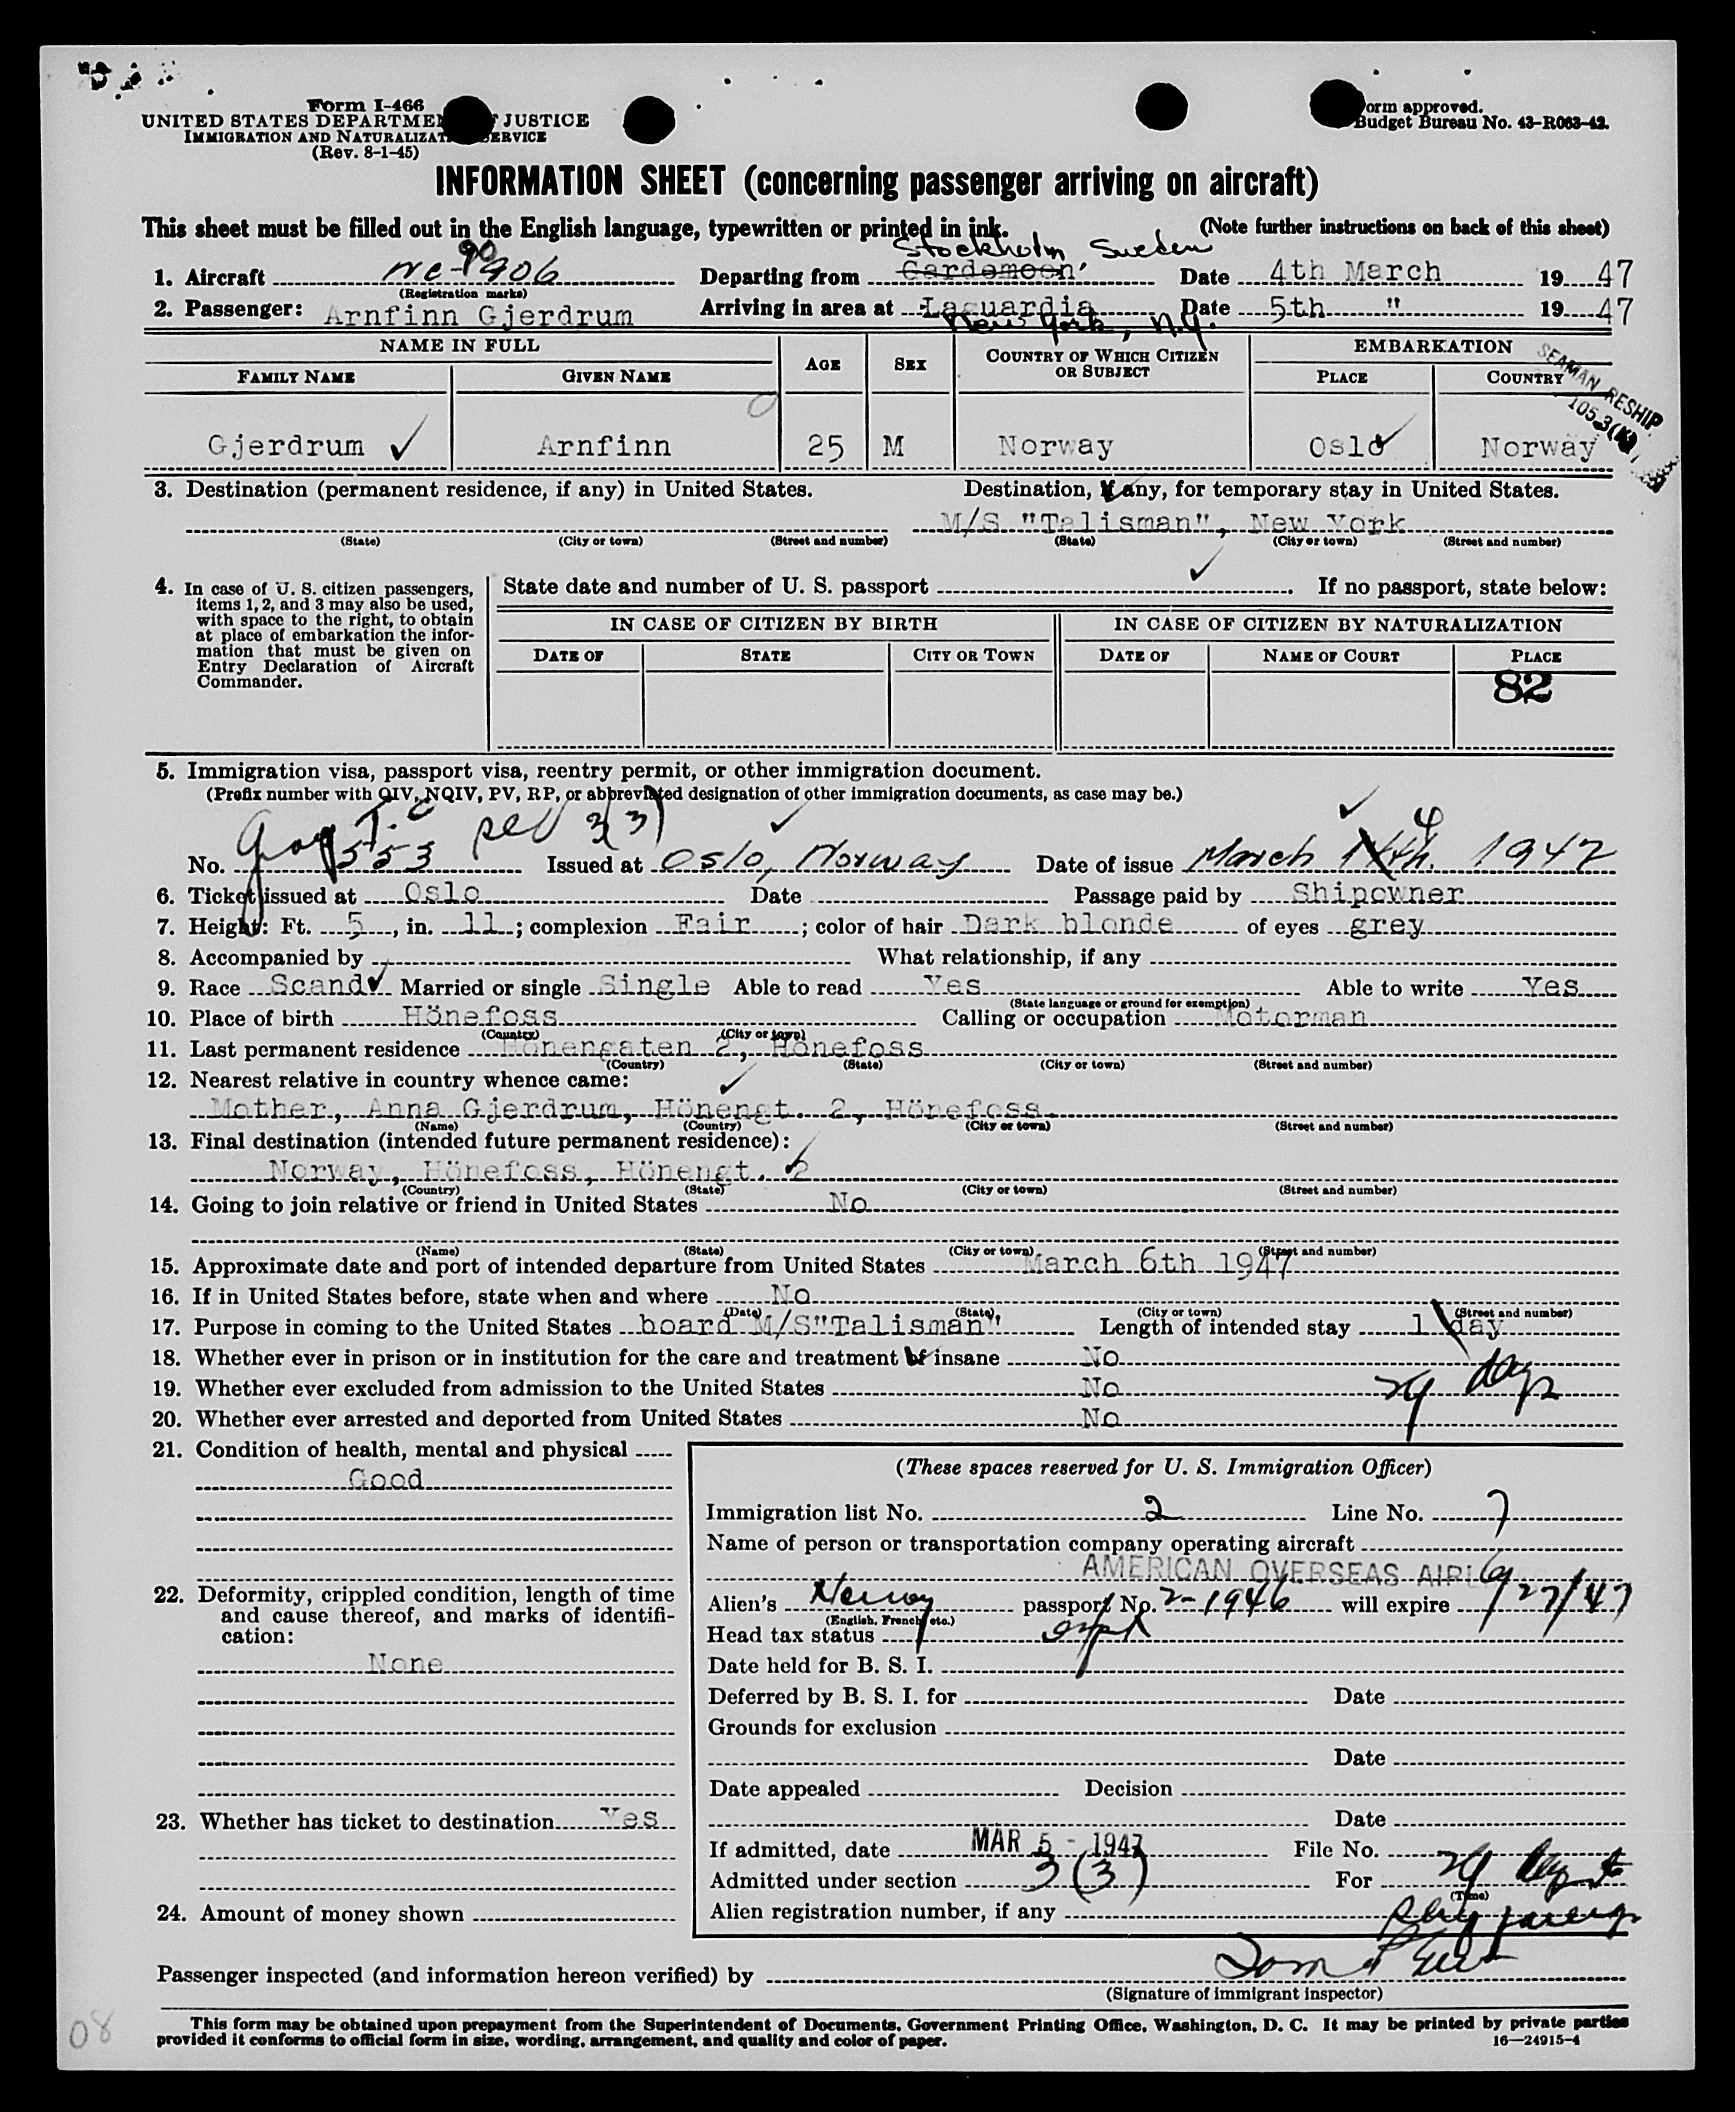 Form I-466
UNITED STATES DEPARTMENT OF JUSTICE
IMMIGRATION AND NATURALIZATION SERVICE
(Rev. 8-1-45)
Form approved.
Budget Bureau No. 43-R063-42.
INFORMATION SHEET (concerning passenger arriving on aircraft)
This sheet must be filled out in the English language, typewritten or printed in ink. (Note further instructions on back of this sheet)
Stockholm, Sweden
1. Aircraft NC-90906 Departing from Gardemoen Date 4th March 1947
(Registration marks)
2. Passenger: Arnfinn Gjerdrum Arriving in area at Laguardia Date 5th " 1947
New York, N.Y.
NAME IN FULL AGE SEX COUNTRY OF WHICH CITIZEN OR SUBJECT EMBARKATION
FAMILY NAME GIVEN NAME PLACE COUNTRY
SEAMAN RESHIP
Gjerdrum Arnfinn 25 M Norway Oslo Norway
3. Destination (permanent residence, if any) in United States. Destination, if any, for temporary stay in United States.
M/S "Talisman", New York
(State) (City or town) (Street and number) (State) (City or town) (Street and number)
4. In case of U. S. citizen passengers, items 1, 2, and 3 may also be used, with space to the right, to obtain at place of embarkation the information that must be given on Entry Declaration of Aircraft Commander.
State date and number of U. S. passport . If no passport, state below:
IN CASE OF CITIZEN BY BIRTH IN CASE OF CITIZEN BY NATURALIZATION
DATE OF STATE CITY OR TOWN DATE OF NAME OF COURT PLACE
82
5. Immigration visa, passport visa, reentry permit, or other immigration document.
(Prefix number with QIV, NQIV, PV, RP, or abbreviated designation of other immigration documents, as case may be.)
3(3)
No. 553 Issued at Oslo, Norway Date of issue March 4th. 1947
6. Ticket issued at Oslo Date Passage paid by Shipowner
7. Height: Ft. 5, in. 11; complexion Fair; color of hair Dark blonde of eyes grey
8. Accompanied by What relationship, if any
9. Race Scand Married or single Single Able to read Yes Able to write Yes
(State language or ground for exemption)
10. Place of birth Hönefoss Calling or occupation Motorman
(Country) (City or town)
11. Last permanent residence Hönengaten 2, Hönefoss
(Country) (State) (City or town) (Street and number)
12. Nearest relative in country whence came:
Mother, Anna Gjerdrum, Hönengt. 2, Hönefoss.
(Name) (Country) (City or town) (Street and number)
13. Final destination (intended future permanent residence):
Norway, Hönefoss, Hönengt. 2
(Country) (State) (City or town) (Street and number)
14. Going to join relative or friend in United States No
(Name) (State) (City or town) (Street and number)
15. Approximate date and port of intended departure from United States March 6th 1947
16. If in United States before, state when and where No
(Date) (State) (City or town) (Street and number)
17. Purpose in coming to the United States board M/S"Talisman" Length of intended stay 1 day
18. Whether ever in prison or in institution for the care and treatment of insane No
29 days
19. Whether ever excluded from admission to the United States No
20. Whether ever arrested and deported from United States No
21. Condition of health, mental and physical
Good
22. Deformity, crippled condition, length of time and cause thereof, and marks of identification:
None
23. Whether has ticket to destination Yes
24. Amount of money shown
(These spaces reserved for U. S. Immigration Officer)
Immigration list No. 2 Line No. 7
Name of person or transportation company operating aircraft
AMERICAN OVERSEAS AIRLINES
Alien's passport No. 2-1946 will expire 9/27/47
(English, French, etc.)
Head tax status
Date held for B. S. I.
Deferred by B. S. I. for Date
Grounds for exclusion
Date
Date appealed Decision
Date
If admitted, date MAR 5 - 1947 File No.
Admitted under section 3(3) For 29 days
(Time)
Alien registration number, if any
Passenger inspected (and information hereon verified) by
(Signature of immigrant inspector)
This form may be obtained upon prepayment from the Superintendent of Documents, Government Printing Office, Washington, D. C. It may be printed by private parties
provided it conforms to official form in size, wording, arrangement, and quality and color of paper.
16—24915-4
08